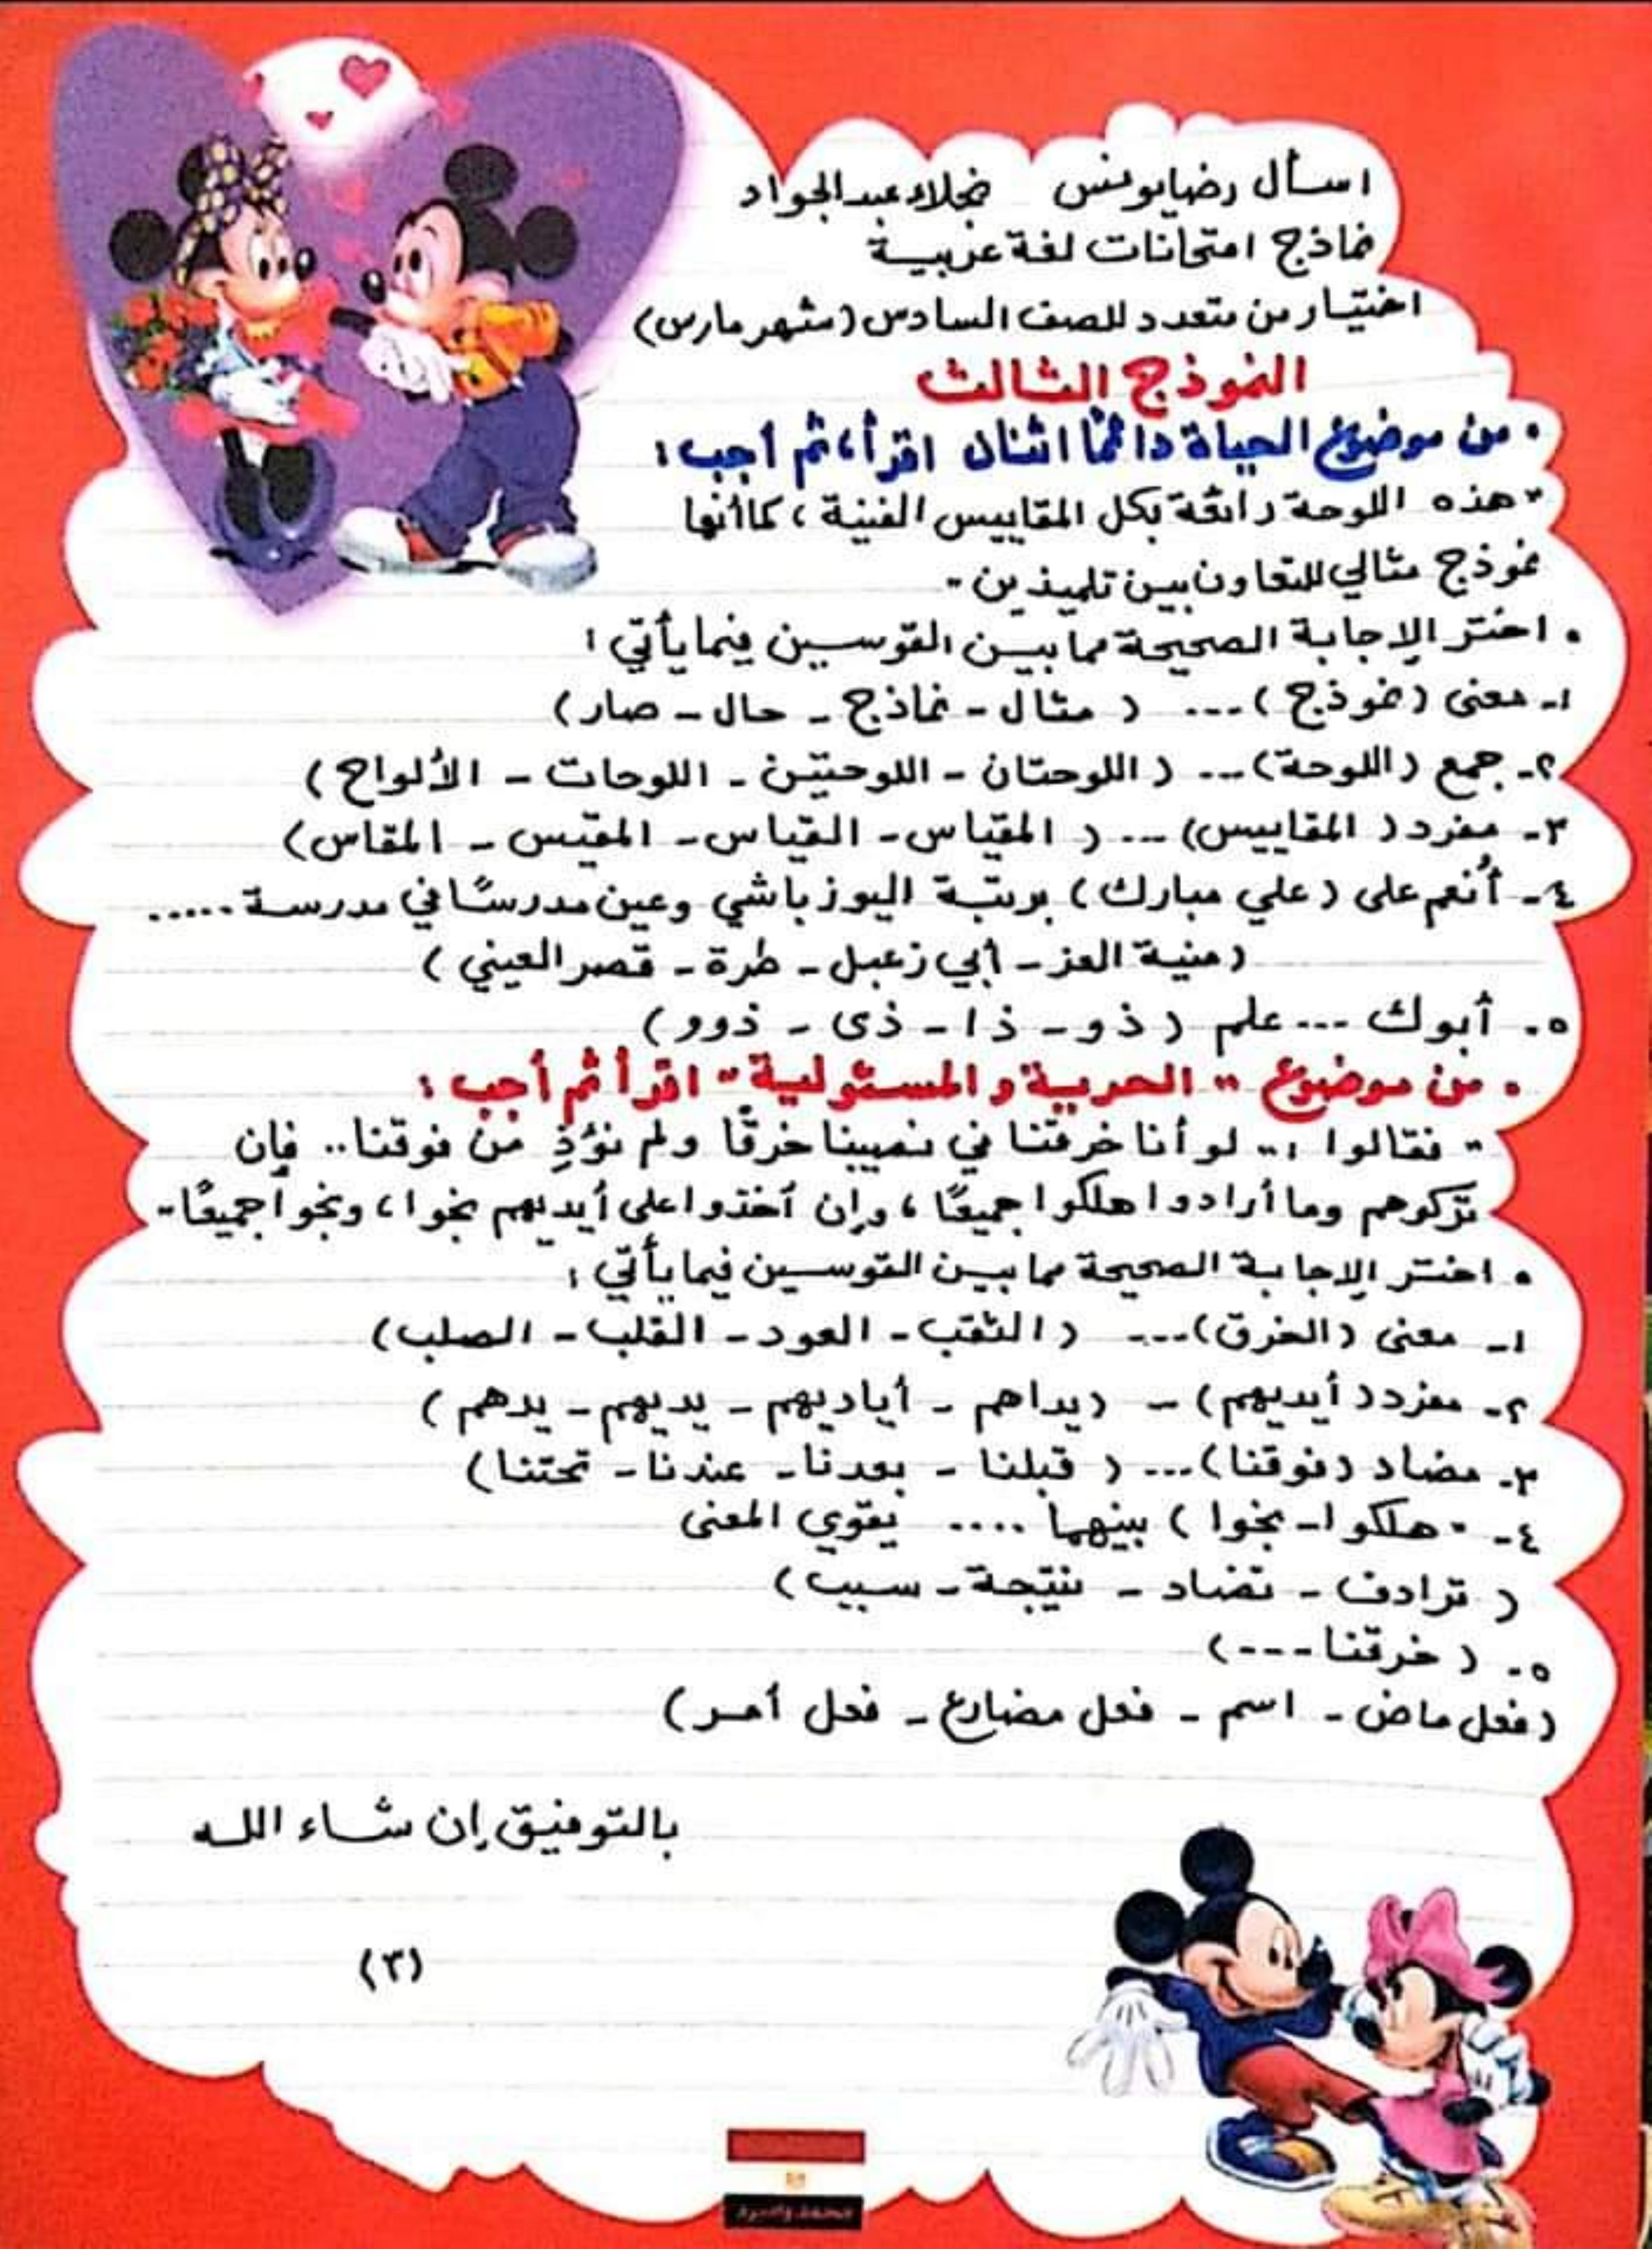 اسأل رضا يونس نجلاء عبد الجواد
نماذج امتحانات لغة عربية
اختيار من متعدد للصف السادس (شهر مارس)
النموذج الثالث
• من موضوع الحياة دائمًا اثنان اقرأ، ثم أجب:
"هذه اللوحة رائعة بكل المقاييس الفنية، كما أنها
نموذج مثالي للتعاون بين تلميذين"
• اختر الإجابة الصحيحة مما بين القوسين فيما يأتي:
١- معنى (نموذج) ... (مثال - نماذج - حال - صار)
٢- جمع (اللوحة) ... (اللوحتان - اللوحتين - اللوحات - الألواح)
٣- مفرد (المقاييس) ... (المقياس - القياس - المقيس - المقاس)
٤- أُنعم على (علي مبارك) برتبة اليوزباشي وعين مدرسًا في مدرسة .....
(منية العز - أبي زعبل - طرة - قصر العيني)
٥- أبوك ... علم (ذو - ذا - ذى - ذوو)
• من موضوع "الحرية والمسئولية" اقرأ ثم أجب:
"فقالوا: لو أنا خرقنا في نصيبنا خرقًا ولم نؤذِ من فوقنا.. فإن
تركوهم وما أرادوا هلكوا جميعًا، وإن أخذوا على أيديهم نجوا، ونجوا جميعًا"
• اختر الإجابة الصحيحة مما بين القوسين فيما يأتي:
١- معنى (الخرق) ... (الثقب - العود - القلب - الصلب)
٢- مفرد (أيديهم) - (يداهم - أياديهم - يديهم - يدهم)
٣- مضاد (فوقنا) ... (قبلنا - بعدنا - عندنا - تحتنا)
٤- "هلكوا - نجوا) بينهما .... يقوي المعنى
(ترادف - تضاد - نتيجة - سبب)
٥- (خرقنا ---)
(فعل ماض - اسم - فعل مضارع - فعل أمر)
بالتوفيق إن شاء الله
(٣)